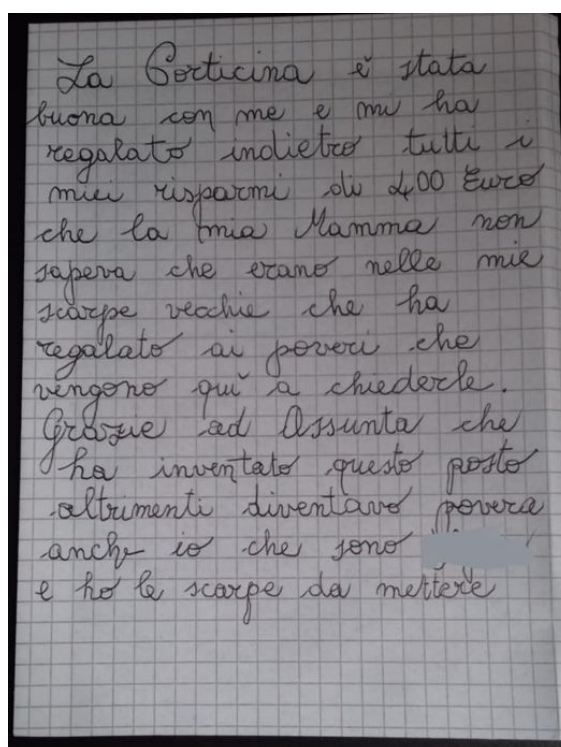 La Corticina è stata
buona con me e mi ha
regalato indietro tutti i
miei risparmi di 400 Euro
che la mia Mamma non
sapeva che erano nelle mie
scarpe vecchie che ha
regalato ai poveri che
vengono quì a chiederle.
Grazie ad Assunta che
ha inventato questo posto
altrimenti diventavo povera
anche io che sono
e ho le scarpe da mettere